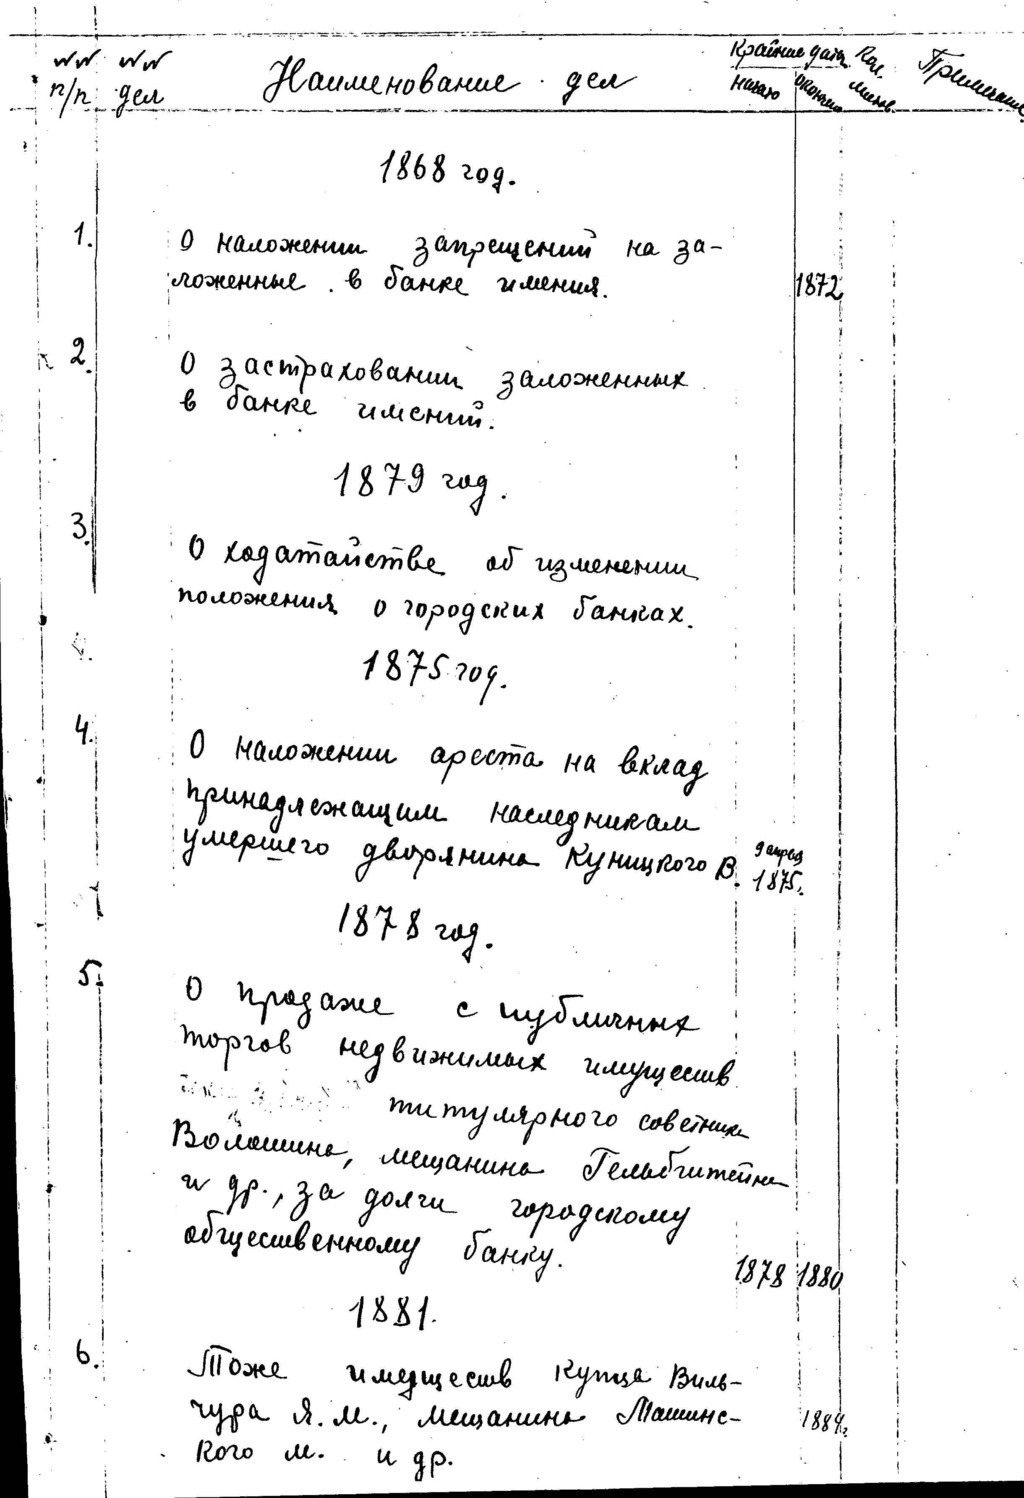 №№ п/п №№ дел Наименование дел Крайние даты начало окончан. Кол. листов Примечание
1868 год.
1. О наложении запрещений на за-
ложенные в банке имения. 1872
2. О застраховании заложенных
в банке имений.
1879 год.
3. О ходатайстве об изменении
положения о городских банках.
1875 год.
4. О наложении ареста на вклад
принадлежащим наследникам
умершего дворянина Куницкого В. 9 апрел
1875.
1878 год.
5. О продаже с публичных
торгов недвижимых имуществ
титулярного советника
Волошина, мещанина Гельбштейна
и др., за долги городскому
общественному банку. 1878 1880
1881.
6. Тоже имуществ купца Виль-
чура Я.М., мещанина Машинс-
кого М. и др. 1884г.